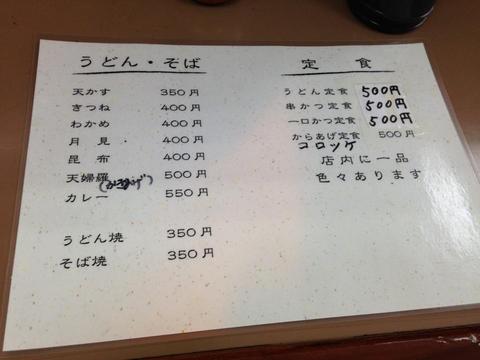 うどん・そば
天かす 350円
きつね 400円
わかめ 400円
月見 400円
昆布 400円
天婦羅 500円
カレー 550円
うどん焼 350円
そば焼 350円
定食
うどん定食 500円
串かつ定食 500円
一口かつ定食 500円
からあげ定食 500円
コロッケ
店内に一品
色々あります